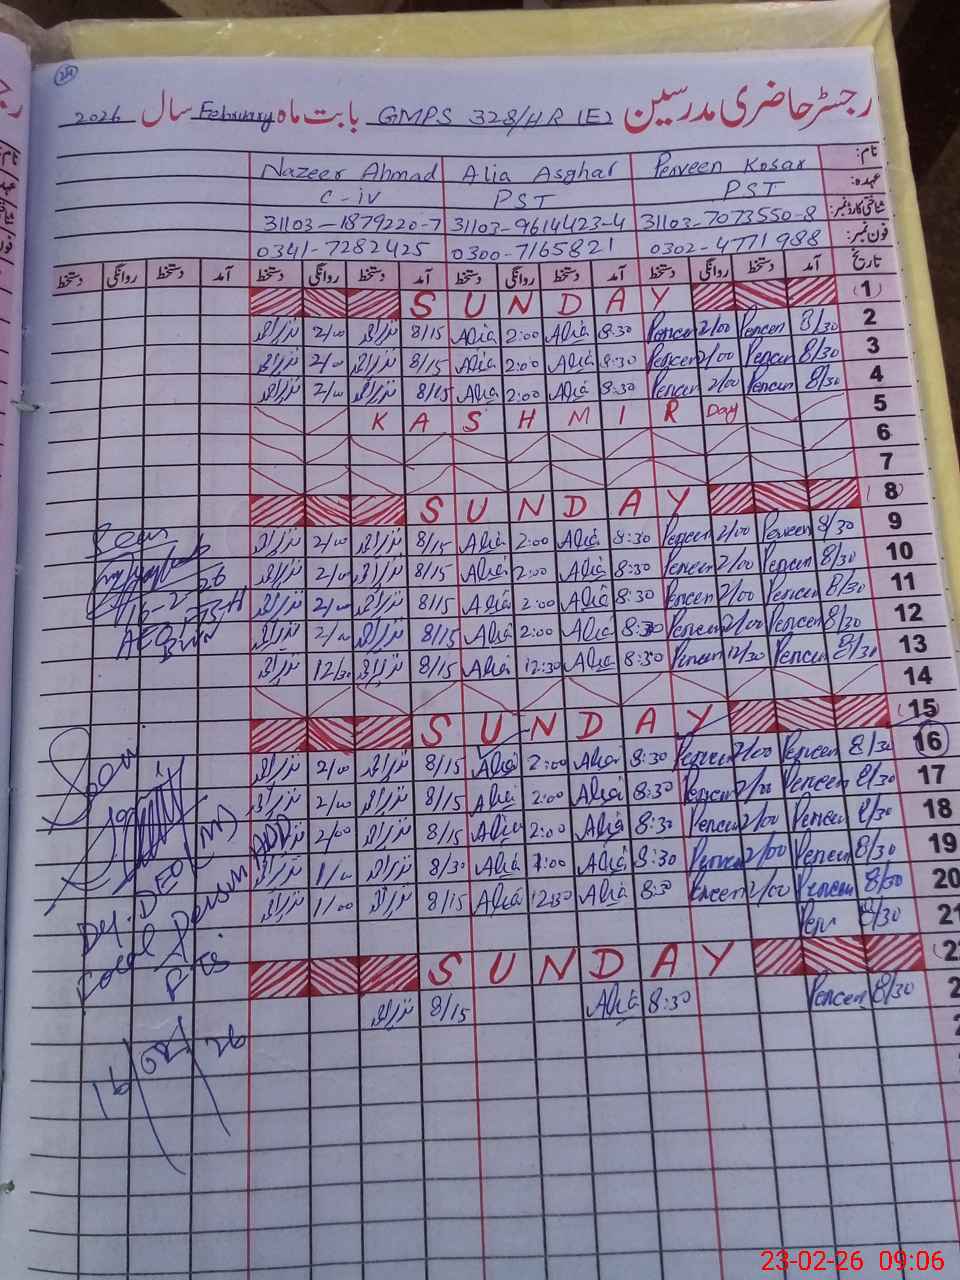 رجسٹر حاضری مدرسین GMPS 328/HR (E) بابت ماہ February سال 2026
نام: Perveen Kosar Alia Asghar Nazeer Ahmad
عہدہ: PST PST C-iv
شناختی کارڈ نمبر: 31103-7073550-8 31103-9614423-4 31103-1879220-7
فون نمبر: 0302-4771988 0300-7165821 0341-7282425
تاریخ آمد دستخط روانگی دستخط آمد دستخط روانگی دستخط آمد دستخط روانگی دستخط آمد دستخط روانگی دستخط
(1) SUNDAY
2 8/30 Perveen 2/00 Perveen 8:30 Alia 2:00 Alia 8/15 نذیر احمد 2/00 نذیر احمد
3 8/30 Perveen 2/00 Perveen 8:30 Alia 2:00 Alia 8/15 نذیر احمد 2/00 نذیر احمد
4 8/30 Perveen 2/00 Perveen 8:30 Alia 2:00 Alia 8/15 نذیر احمد 2/00 نذیر احمد
5 KASHMIR Day
6
7
(8) SUNDAY
9 8/30 Perveen 2/00 Perveen 8:30 Alia 2:00 Alia 8/15 نذیر احمد 2/00 نذیر احمد
10 8/30 Perveen 2/00 Perveen 8:30 Alia 2:00 Alia 8/15 نذیر احمد 2/00 نذیر احمد
11 8/30 Perveen 2/00 Perveen 8:30 Alia 2:00 Alia 8/15 نذیر احمد 2/00 نذیر احمد
12 8/30 Perveen 2/00 Perveen 8:30 Alia 2:00 Alia 8/15 نذیر احمد 2/00 نذیر احمد
13 8/30 Perveen 12/30 Perveen 8:30 Alia 12:30 Alia 8/15 نذیر احمد 12/30 نذیر احمد
14
(15) SUNDAY
16 8/30 Perveen 2/00 Perveen 8:30 Alia 2:00 Alia 8/15 نذیر احمد 2/00 نذیر احمد
17 8/30 Perveen 2/00 Perveen 8:30 Alia 2:00 Alia 8/15 نذیر احمد 2/00 نذیر احمد
18 8/30 Perveen 2/00 Perveen 8:30 Alia 2:00 Alia 8/15 نذیر احمد 2/00 نذیر احمد
19 8/30 Perveen 2/00 Perveen 8:30 Alia 1:00 Alia 8/30 نذیر احمد 1/00 نذیر احمد
20 8/30 Perveen 2/00 Perveen 8:30 Alia 12:30 Alia 8/15 نذیر احمد 1/00 نذیر احمد
21 8/30
SUNDAY
8/30 Perveen 8:30 Alia 8/15 نذیر احمد
Seen
16-2-26
AEO
Seen
Dy. DEO (M)
Focal Person
16/02/26
23-02-26 09:06